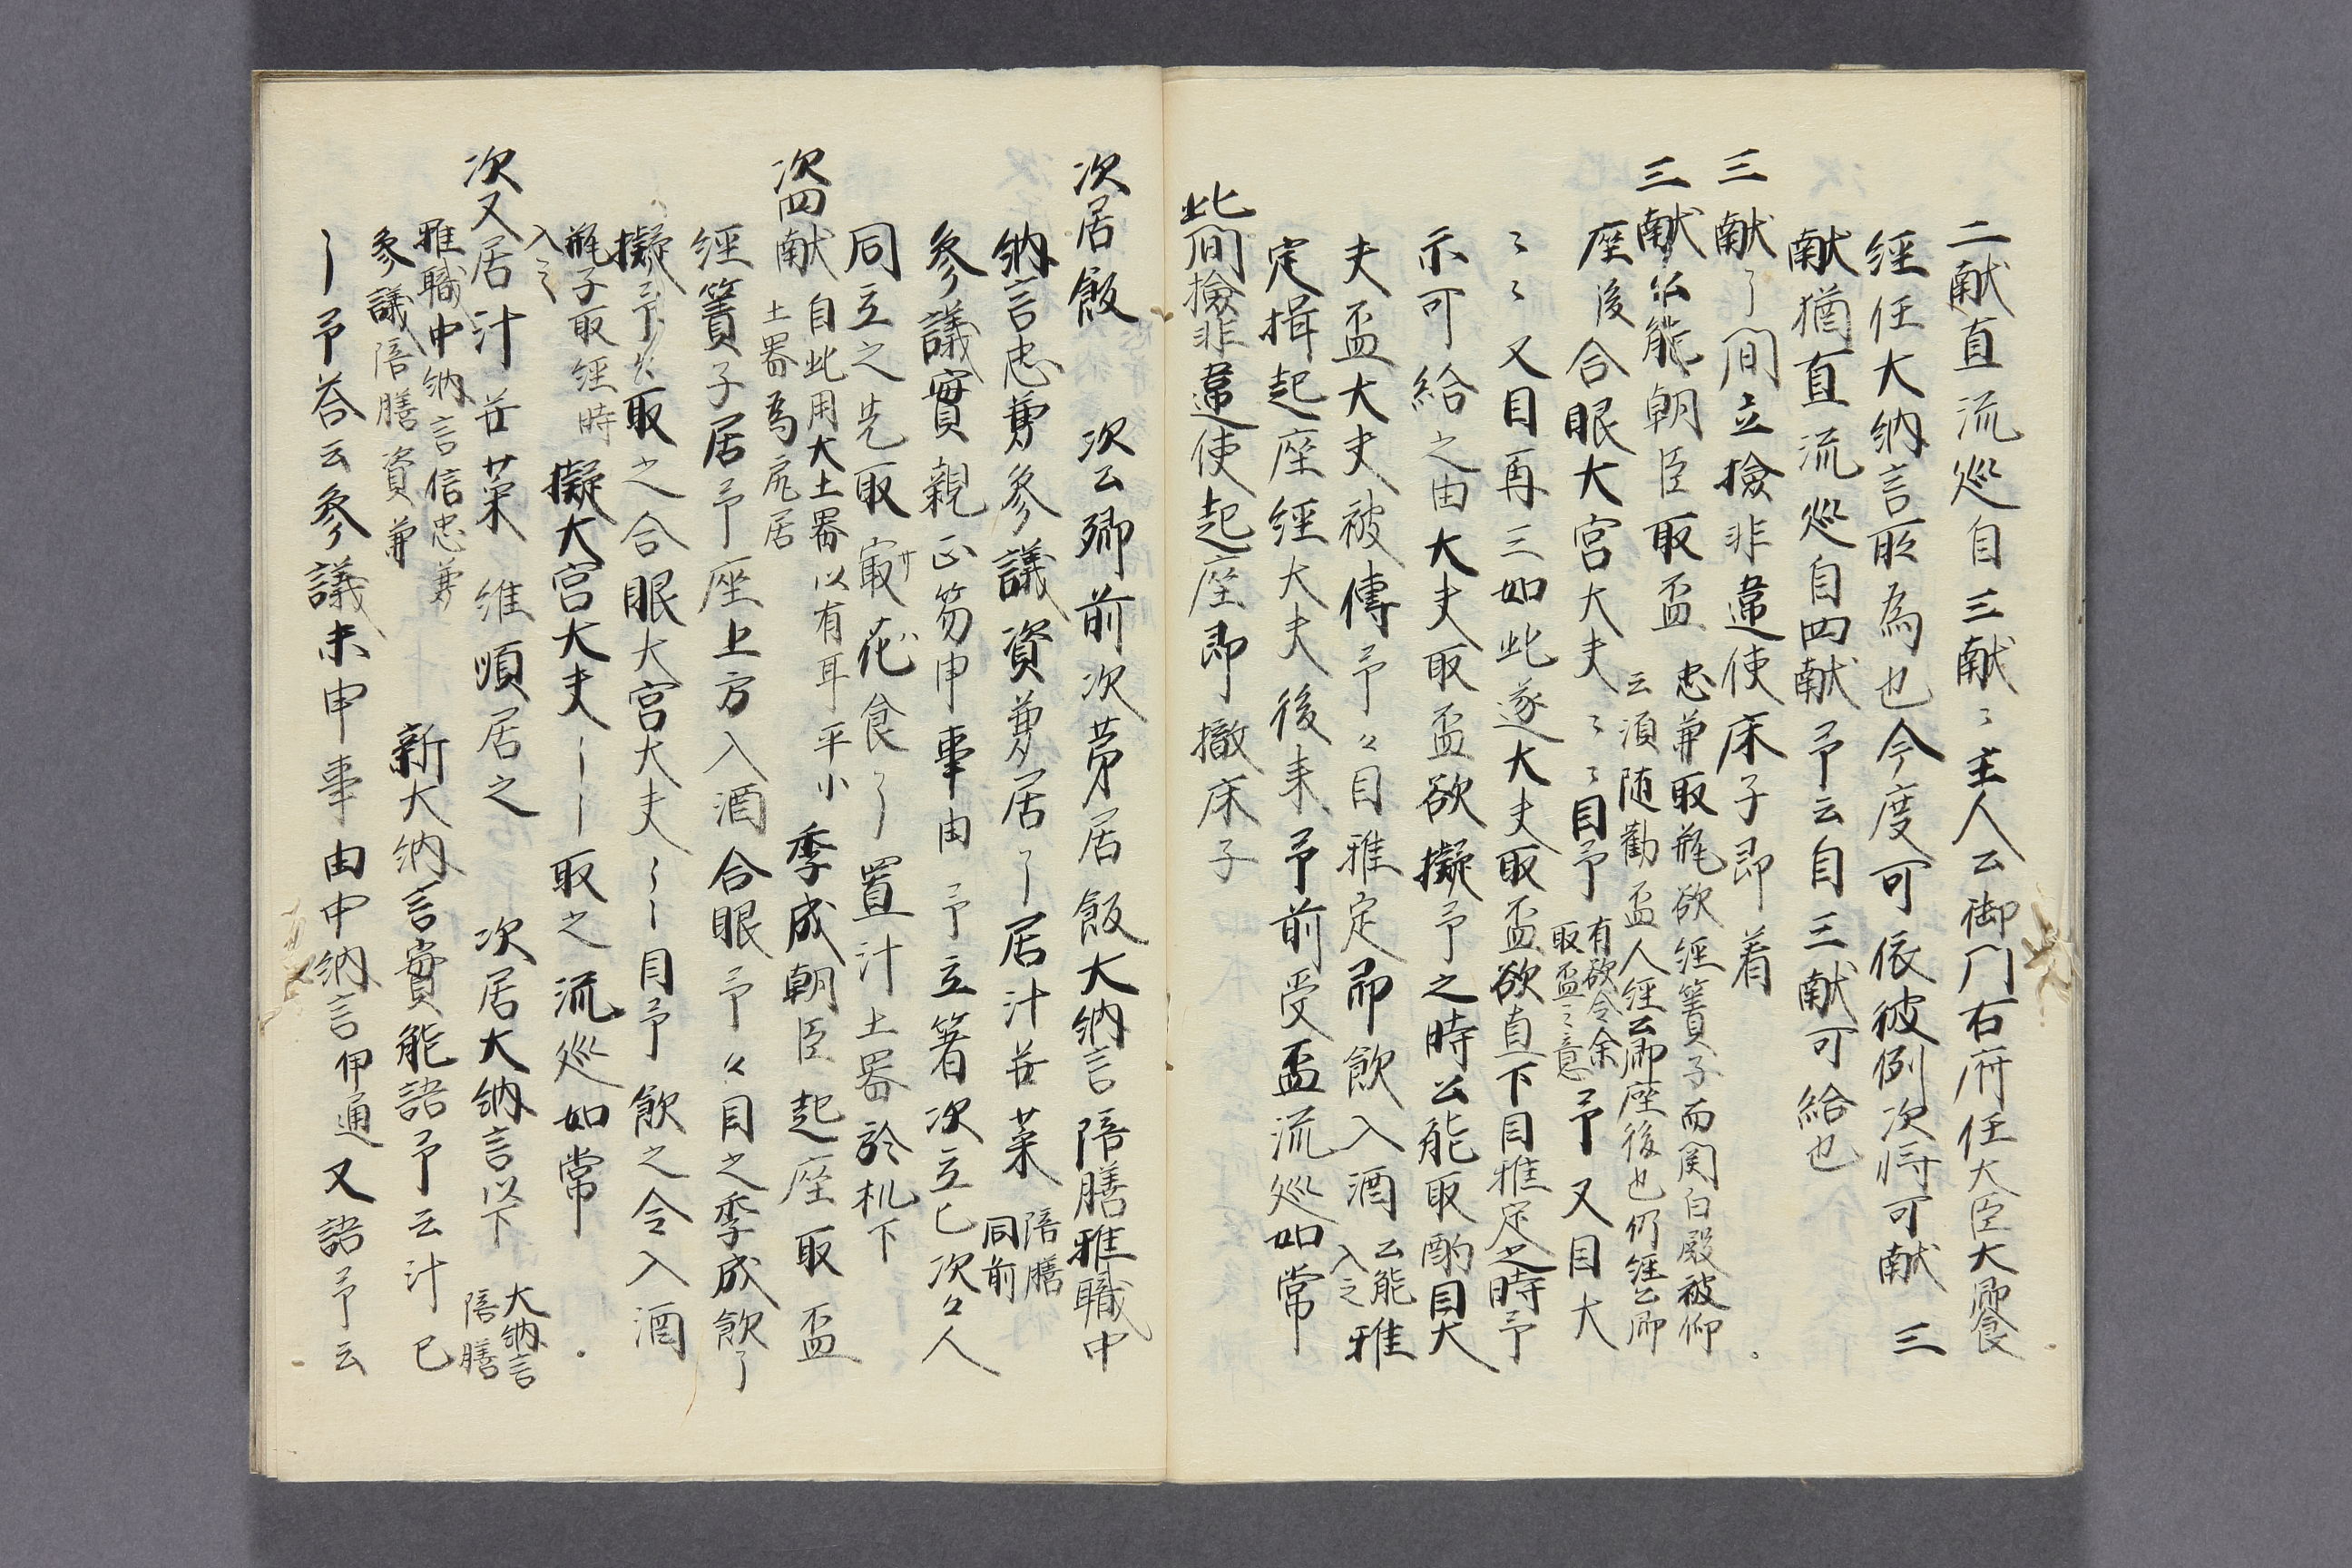 二献直流巡自三献〻主人公御門右府任大臣大饗
経任大納言所為也今度可依彼例次将可献　三
献猶直流巡自四献予云自三献可給也
三献了間立撿非違使床子即着
三献公能朝臣取盃　忠兼取瓶欲経簀子而関白殿被仰
云須随勧盃人経公卿座後也仍経公卿
座後　合眼大宮大夫〻〻目予　有欲令余
取盃之意　予又目大
〻〻又目再三如此遂大夫取盃欲直下目雅定之時予
示可給之由大夫取盃欲擬予之時公能取酌目大
夫盃大夫被傳予々目雅定即飲入酒　公能
入之　雅
定揖起座経大夫後来予前受盃流巡如常
此間撿非違使起座即撤床子
次居飯　次公卿前次第居飯大納言陪膳雅職中
納言忠兼参議資兼居了居汁并菜　陪膳
同前
参議實親正笏申事由　予立箸次立匕次々人
同立之先取　花食了置汁土器於机下
次四献　自此用大土器以有耳平小
土器為尻居　季成朝臣起座取盃
経簀子居予座上方入酒合眼予々目之季成飲了
擬予々取之合眼大宮大夫〻〻目予飲之令入酒
瓶子取経時
入之　擬大宮大夫〻〻取之流巡如常
次又居汁并菜　雅順居之　次居大納言以下　大納言
陪膳
雅職中納言信忠兼
参議陪膳資兼　新大納言實能語予云汁匕
〻予答云参議未申事由中納言伊通又語予云